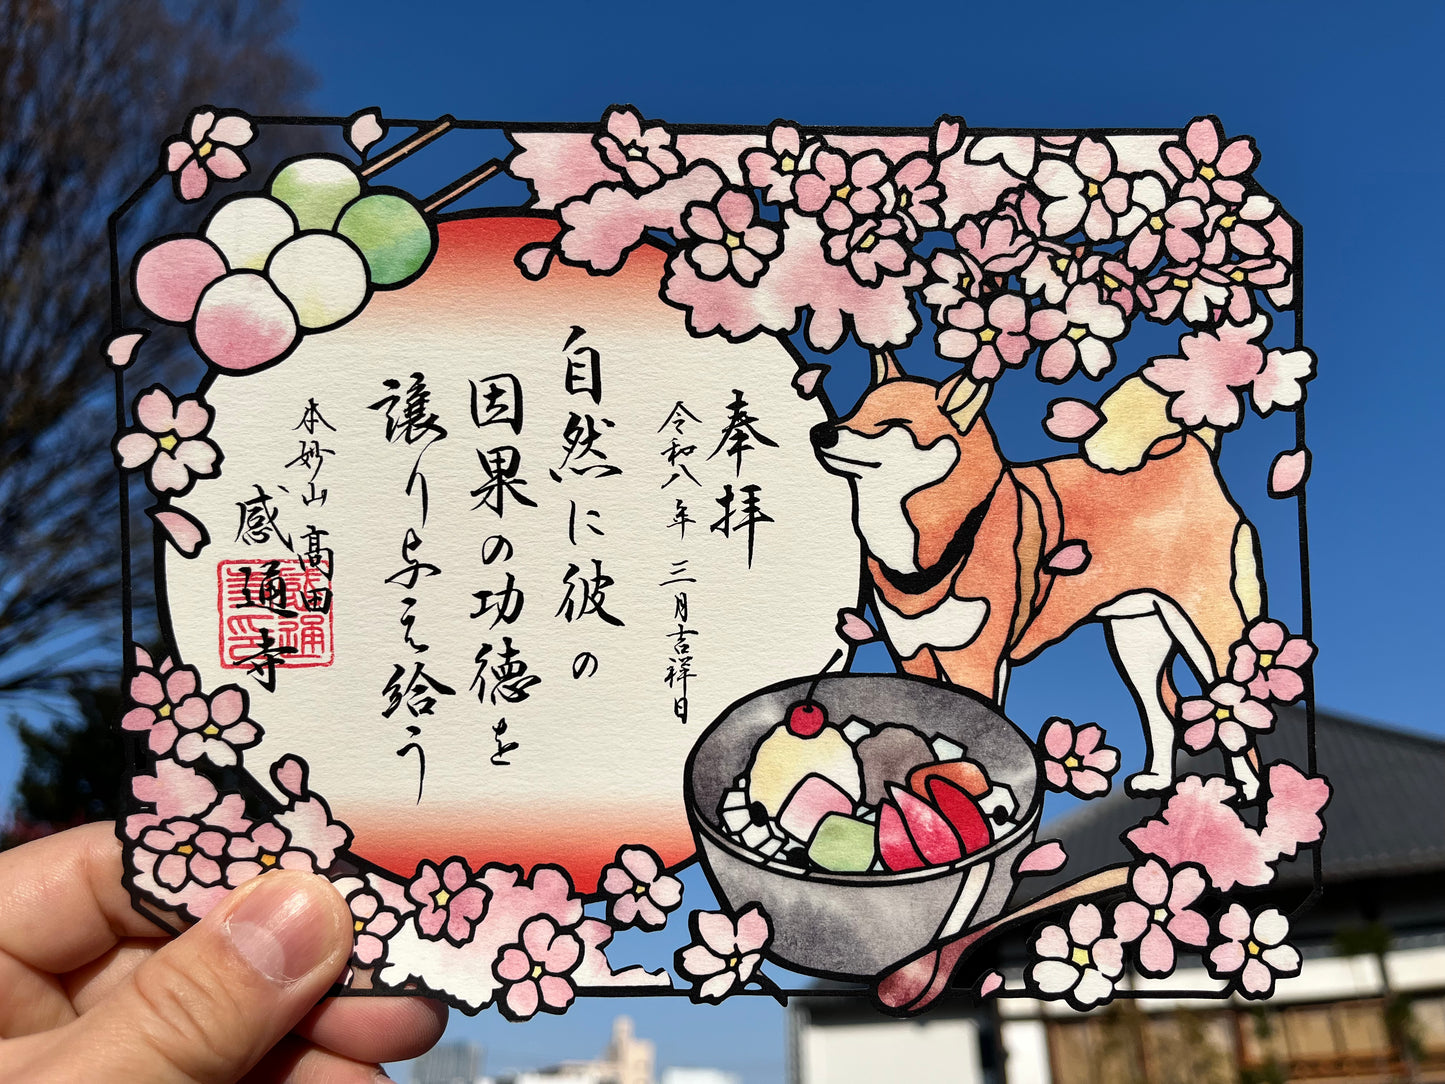 奉拝
令和八年 三月吉祥日
自然に彼の
因果の功徳を
譲り与え給う
本妙山 高田
感通寺